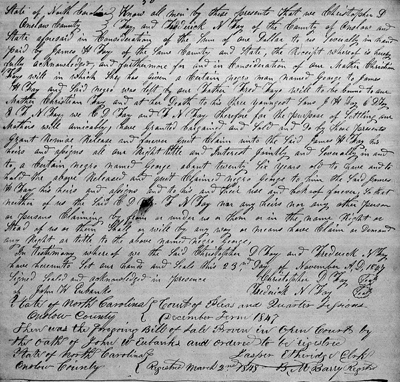 State of North Carolina Know all men by these presents that we Christopher D
Onslow County Fay and Frederick N Fay of the County of Onslow and
State aforesaid in Consideration of the Sum of one Dollar to us Severally in hand
paid by James H Fay of the Same County and State, the Receipt whereof is hereby
fully acknowledged, and furthermore for and in Consideration of our Mother Christian
Fay will in which They has given a Certain negro man named George to James
H Fay and Said negro was left by our Father Fred Fays will to be bound to our
Mother Christian Fay and at her Death to his three youngest Sons J H Fay C D Fay
& F N Fay we C D Fay and F N Fay Therefore for the purpose of Settling our
Mothers will amicably have Granted bargained and Sold and Do by these presents
Grant Remise Release and forever quit Claim unto the Said James H Fay his
heirs and assigns all our Right title and Interest jointly and Severally in and
to a certain negro named George about twenty Six years old to have and to
hold the above Released and quit Claimed negro George to him the Said James
H Fay his heirs and assigns and to his and their use and behoof forever So that
neither of us the Said C D Fay F N Fay nor any heirs nor any other person
or persons Claiming by from or under us or them or in the name Right or
Stead of us or them Shall or will by any way or means have Claim or Demand
any Right or title to the above named negro George.
In Testimony whereof we the Said Christopher D Fay and Frederick N Fay
have hereunto Set our hands and Seals this 23rd Day of November A.D. 1847
Signed Sealed and acknowledged in presence Christopher D Fay Seal
of John W Eubanks Fredrick N Fay Seal
State of North Carolina Court of Pleas and Quarter Sessions
Onslow County December Term 1847
Then was the foregoing Bill of Sale Proven in Open Court by
the Oath of John W Eubanks and ordered to be registered
State of North Carolina Jasper Etheridge Clerk
Onslow County Registered March 2nd 1848 B M Barry Register